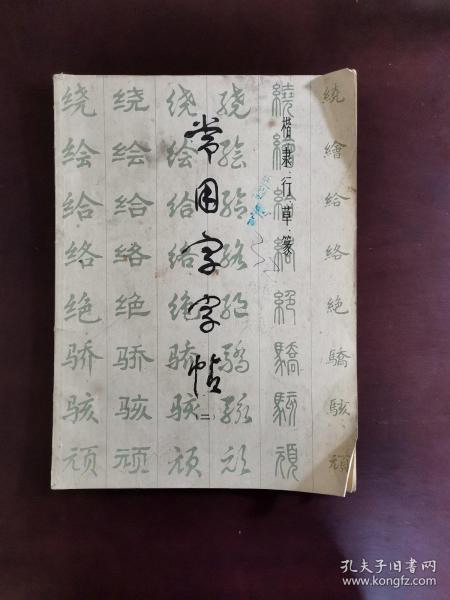 楷隶行草篆
常用字字帖
(二)
绕 绕 绕 绕 繞 繞
绘 绘 绘 绘 繪 繪
给 给 给 给 給 給
络 络 络 络 絡 絡
绝 绝 绝 绝 絕 絶
骄 骄 骄 驕 驕 驕
骇 骇 骇 骇 駭 駭
顽 顽 顽 顽 頑 頑
孔夫子旧书网
www.kongfz.com